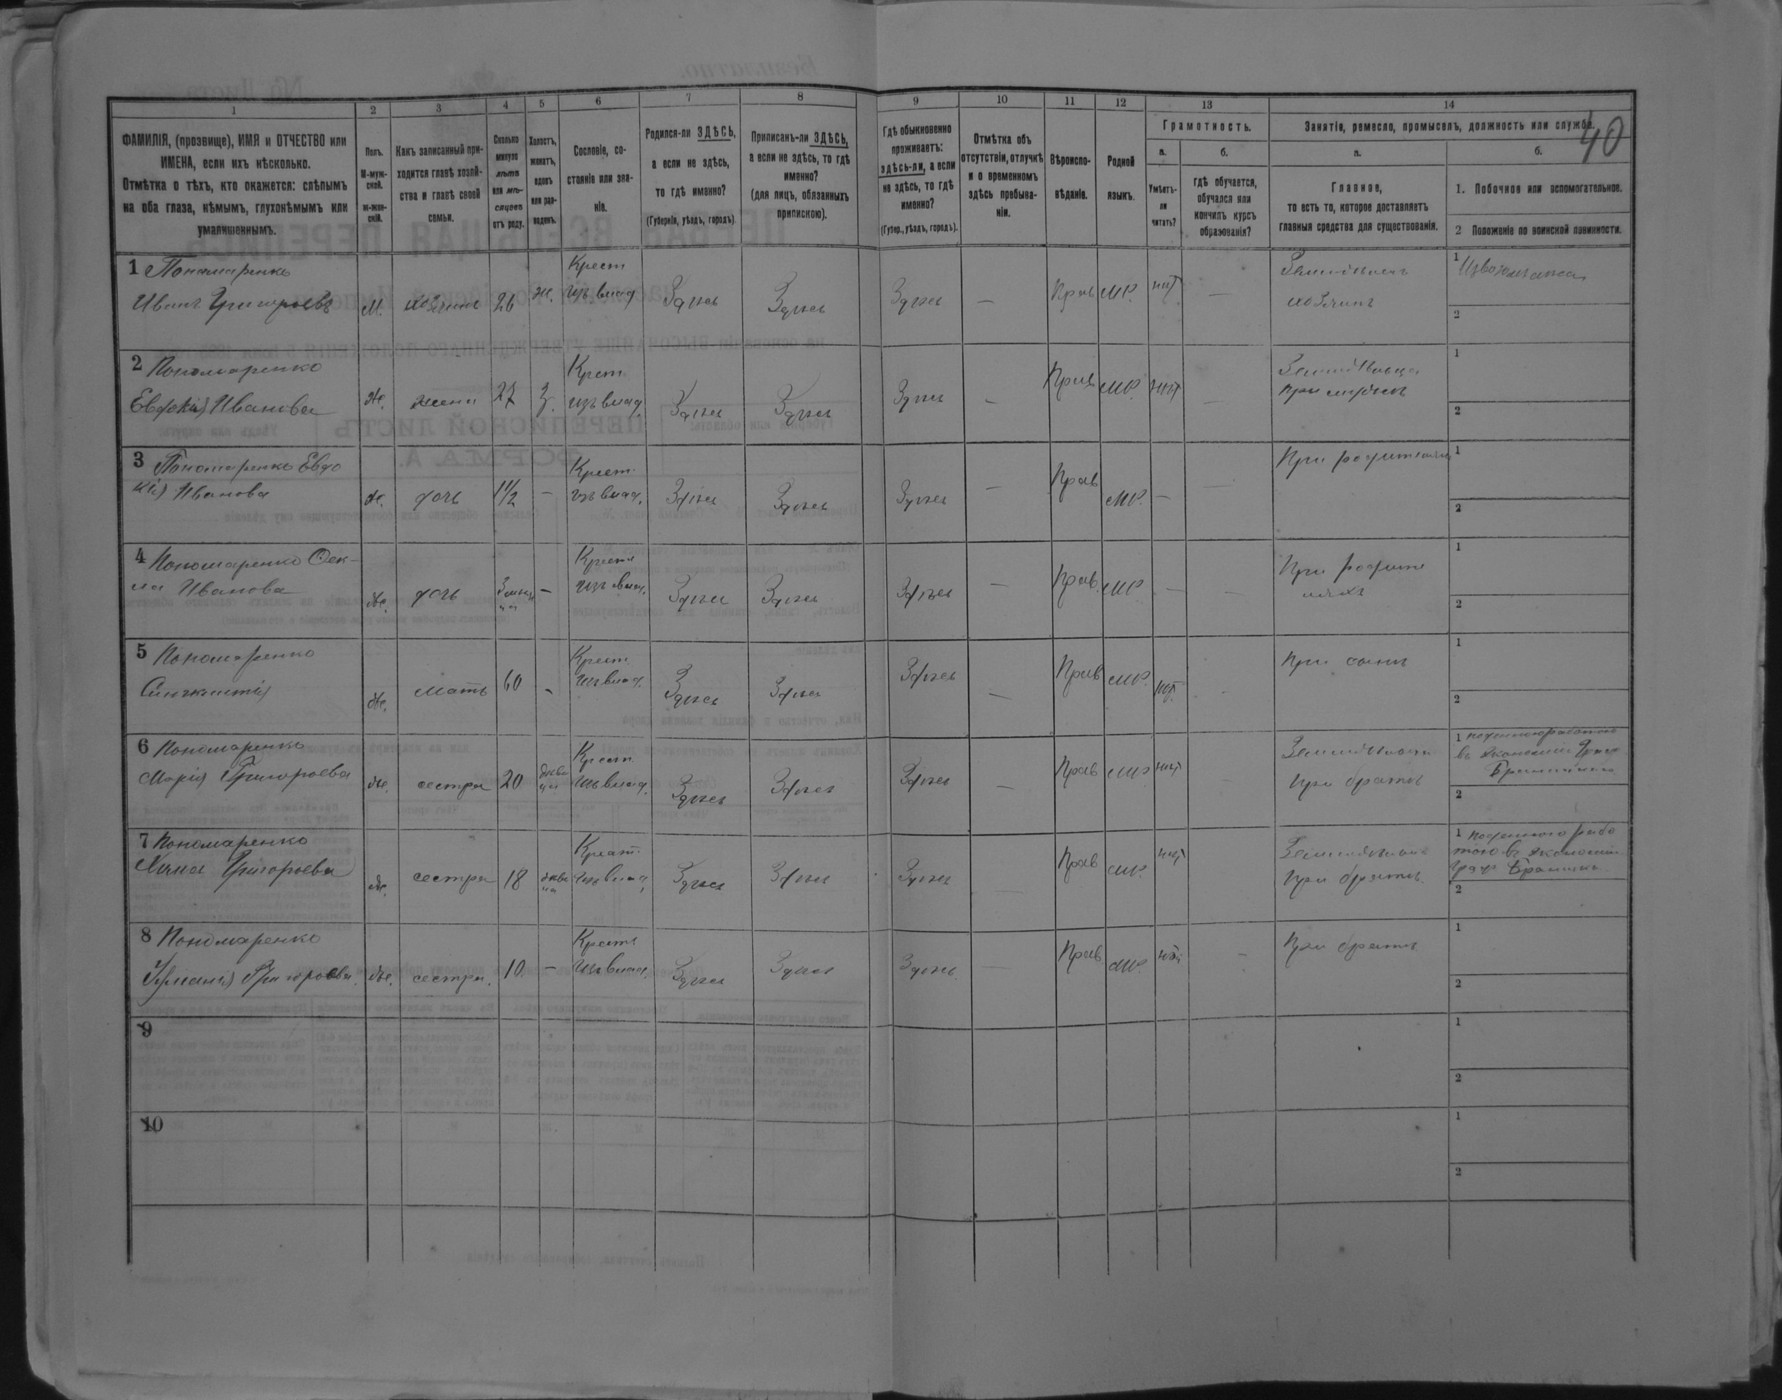 40
1 2 3 4 5 6 7 8 9 10 11 12 13 14
ФАМИЛІЯ, (прозвище), ИМЯ и ОТЧЕСТВО или ИМЕНА, если ихъ нѣсколько.
Отмѣтка о тѣхъ, кто окажется: слѣпымъ на оба глаза, нѣмымъ, глухонѣмымъ или умалишеннымъ.
Полъ.
М-мужской.
ж-женскій.
Какъ записанный приходится главѣ хозяйства и главѣ своей семьи.
Сколько минуло лѣтъ или мѣсяцевъ отъ роду.
Холостъ, женатъ, вдовъ или разведенъ.
Сословіе, состояніе или званіе.
Родился-ли ЗДѢСЬ, а если не здѣсь, то гдѣ именно?
(Губернія, уѣздъ, городъ).
Приписанъ-ли ЗДѢСЬ, а если не здѣсь, то гдѣ именно?
(для лицъ, обязанныхъ припискою).
Гдѣ обыкновенно проживаетъ: здѣсь-ли, а если не здѣсь, то гдѣ именно?
(Губер., уѣздъ, городъ).
Отмѣтка объ отсутствіи, отлучкѣ и о временномъ здѣсь пребываніи.
Вѣроисповѣданіе.
Родной языкъ.
Грамотность.
а.
Умѣетъ-ли читать?
б.
гдѣ обучается, обучался или кончилъ курсъ образованія?
Занятіе, ремесло, промыселъ, должность или служба.
а.
Главное,
то есть то, которое доставляетъ главныя средства для существованія.
б.
1. Побочное или вспомогательное.
2 Положеніе по воинской повинности.
1 Пономаренко
Иванъ Григорьевъ М. хозяинъ 26 ж. Крест. изъ влад. Здѣсь Здѣсь Здѣсь — Прав МР. нѣт — хозяинъ
1
2
2 Пономаренко
Евдокія Иванова Ж. жена 27 З. Крест. изъ влад. Здѣсь Здѣсь Здѣсь — Прав МР. нѣт — при мужѣ
1
2
3 Пономаренко Евдо
кія Иванова Ж. дочь 1 1/2 — Крест. изъ влад. Здѣсь Здѣсь Здѣсь — Прав МР. — При родителях
1
2
4 Пономаренко Фек-
ла Иванова Ж. дочь — Крест. изъ влад. Здѣсь Здѣсь Здѣсь — Прав. МР. — — При родите
ляхъ
1
2
5 Пономаренко
Ж. мать 60 — Крест. изъ влад. Здѣсь Здѣсь Здѣсь — Прав МР. нѣт. — При сынѣ
1
2
6 Пономаренко
Марія Григорьева Ж. сестра 20 Крест. изъ влад. Здѣсь Здѣсь Здѣсь — Прав МР нѣт — при братѣ
1 въ экономіи
2
7 Пономаренко
Григорьева Ж. сестра 18 Крест. изъ влад. Здѣсь Здѣсь Здѣсь — Прав МР. нѣт — при братѣ
1 поденною рабо
тою въ экономіи
2
8 Пономаренко
Григорьева. Ж. сестра. 10 — Крест. изъ влад. Здѣсь Здѣсь Здѣсь — Прав МР. нѣт — При братѣ
1
2
9
1
2
10
1
2